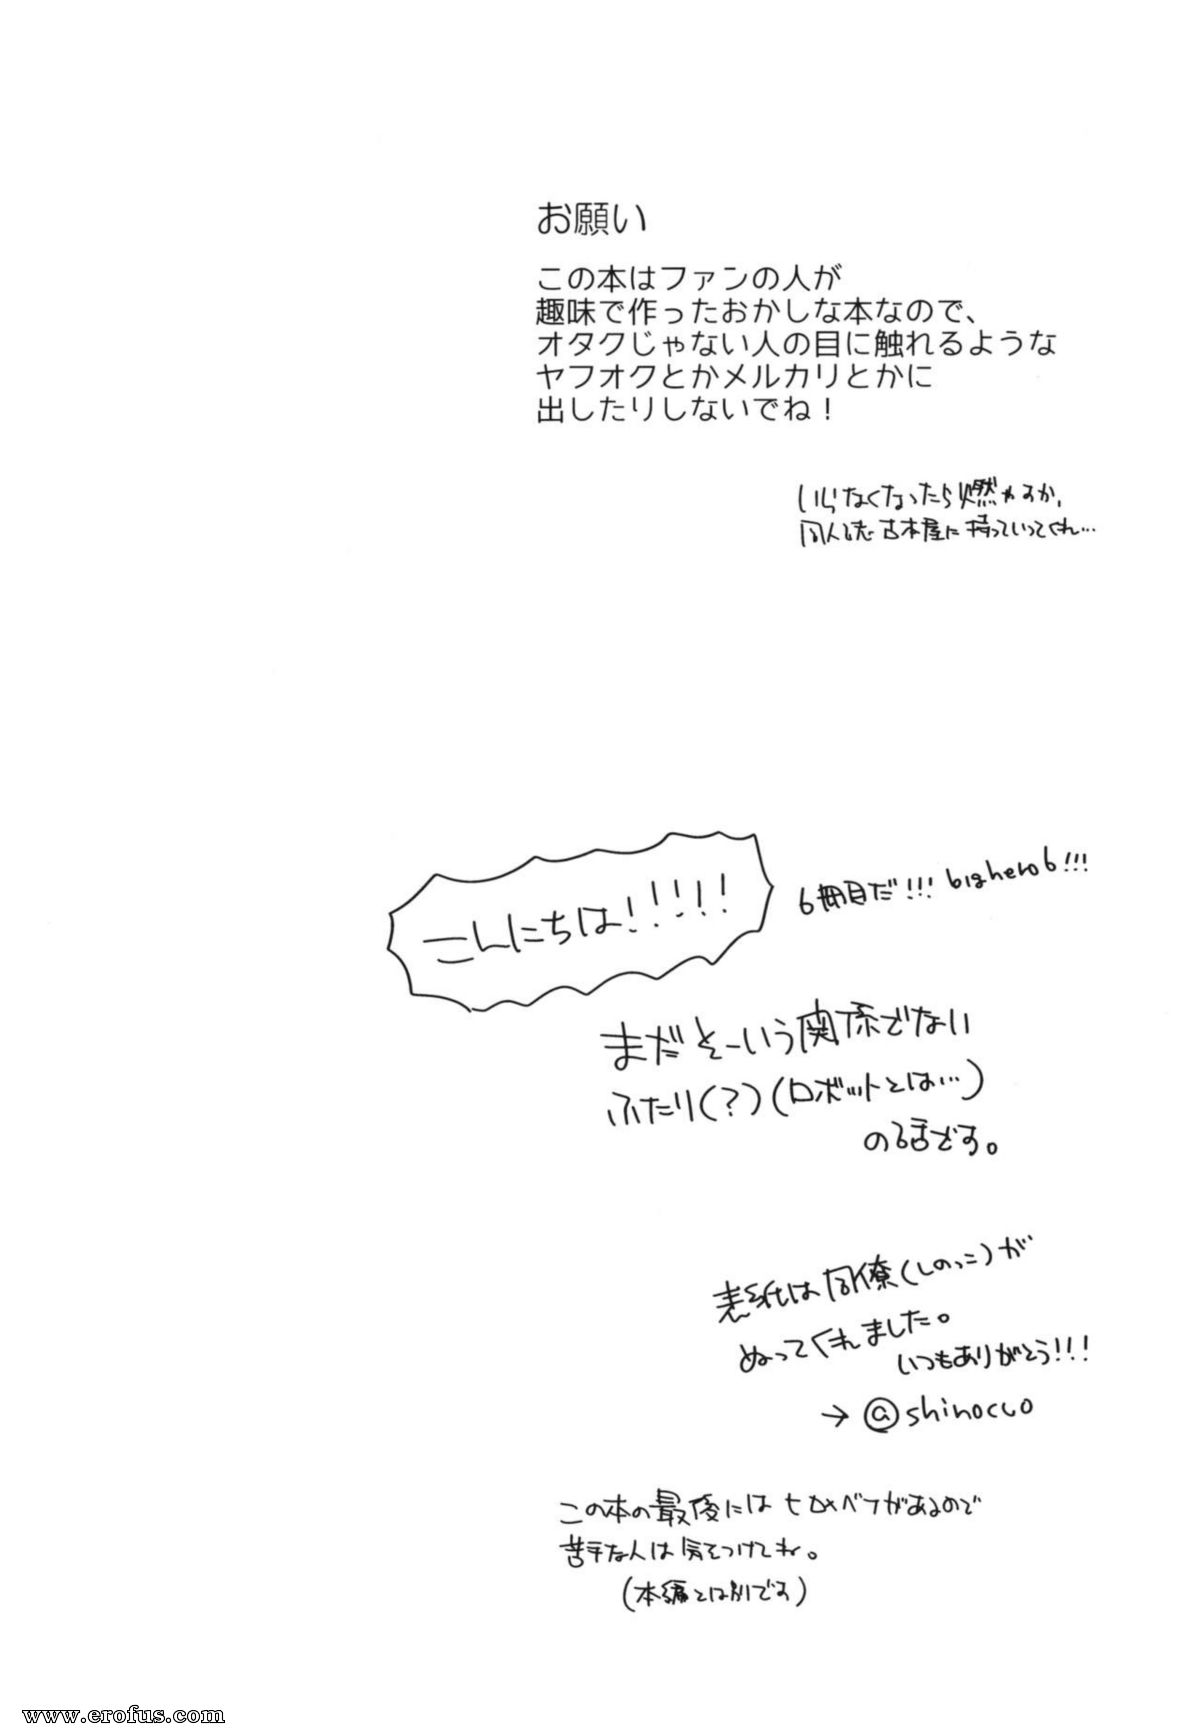 お願い
この本はファンの人が
趣味で作ったおかしな本なので、
オタクじゃない人の目に触れるような
ヤフオクとかメルカリとかに
出したりしないでね！
いらなくなったら燃やすか、
同人誌古本屋に持っていってくれ…
こんにちは！！！！！
6冊目だ!!! bighero6!!!
まだそーいう関係でない
ふたり(？)(ロボットとは…)
の話です。
表紙は同僚(しのっこ)が
ぬってくれました。
いつもありがとう!!!
→@shinocco
この本の最後にはヒロ×ベマがあるので
苦手な人は気をつけてね。
(本編とは別です)
www.erofus.com